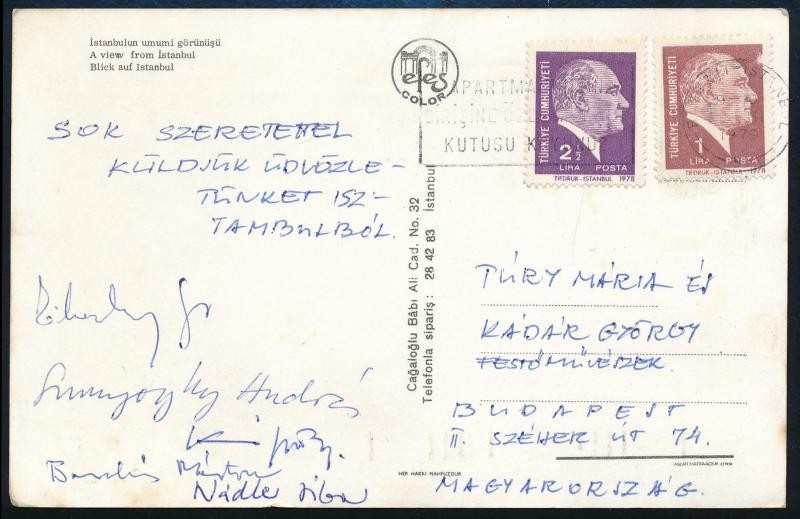 İstanbulun umumi görünüşü
A view from İstanbul
Blick auf Istanbul
efes
COLOR
APARTMA
GİRİŞİNE
KUTUSU
TÜRKİYE CUMHURİYETİ
2 1/2
LİRA POSTA
TİFDRUK-İSTANBUL 1978
TÜRKİYE CUMHURİYETİ
1
LİRA POSTA
TİFDRUK-İSTANBUL 1978
SOK SZERETETTEL
KÜLDJÜK ÜDVÖZLE-
TÜNKET ISZ-
TAMBULBÓL.
András
Nádler
Cağaloğlu Bâbı Ali Cad. No. 32
Telefonla sipariş: 28 42 83 İstanbul
TÚRY MÁRIA ÉS
KÁDÁR GYÖRGY
FESTŐMŰVÉSZEK.
BUDAPEST
II. SZÉHER ÚT 74.
MAGYARORSZÁG.
HER HAKKI MAHFUZDUR